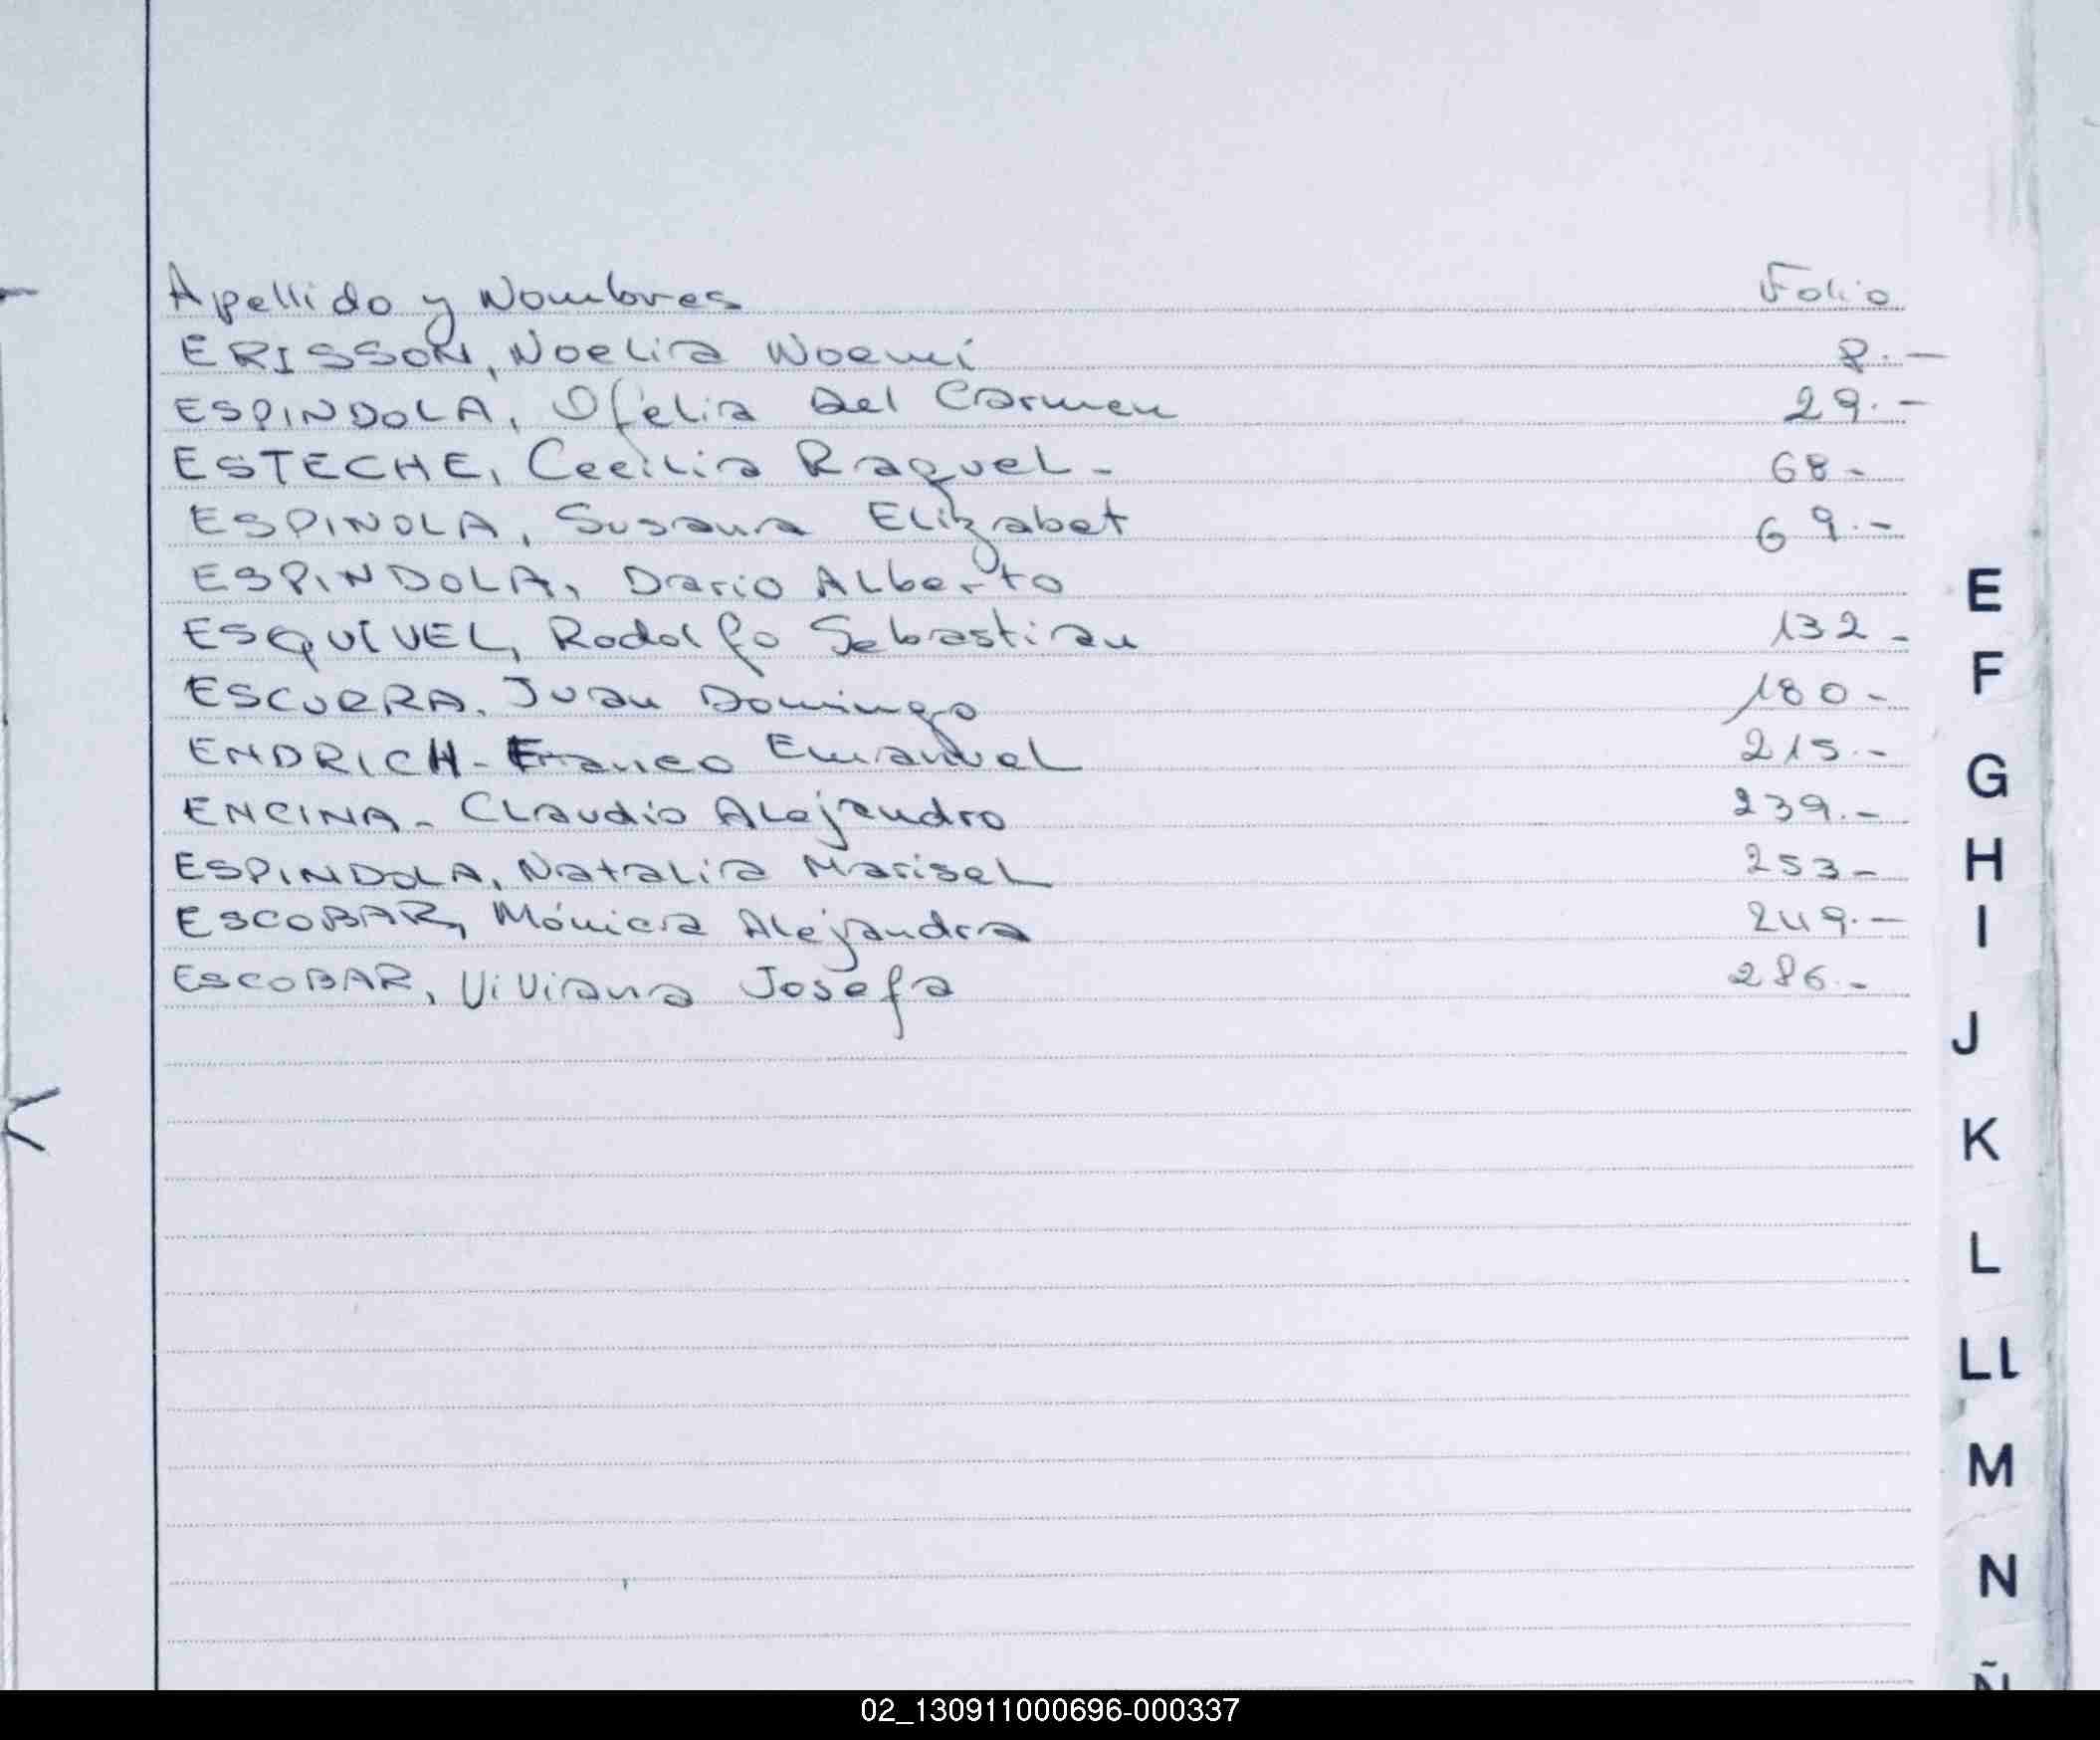 Apellido y Nombres Folio
ERISSON, Noelia Noemí 8.-
ESPINDOLA, Ofelia Del Carmen 29.-
ESTECHE, Cecilia Raquel- 68-
ESPINOLA, Susana Elizabet 69.-
ESPINDOLA, Dario Alberto
ESQUIVEL, Rodolfo Sebastian 132-
ESCURRA, Juan Domingo 180-
ENDRICH- Franco Emanuel 215.-
ENCINA- Claudio Alejandro 239.-
ESPINDOLA, Natalia Marisel 253-
ESCOBAR, Mónica Alejandra 249.-
ESCOBAR, Viviana Josefa 286.-
E
F
G
H
I
J
K
L
Ll
M
N
Ñ
02_130911000696-000337